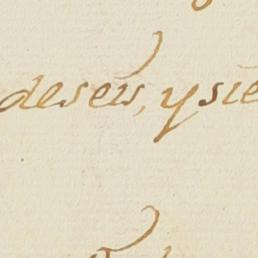 deseis, y sie